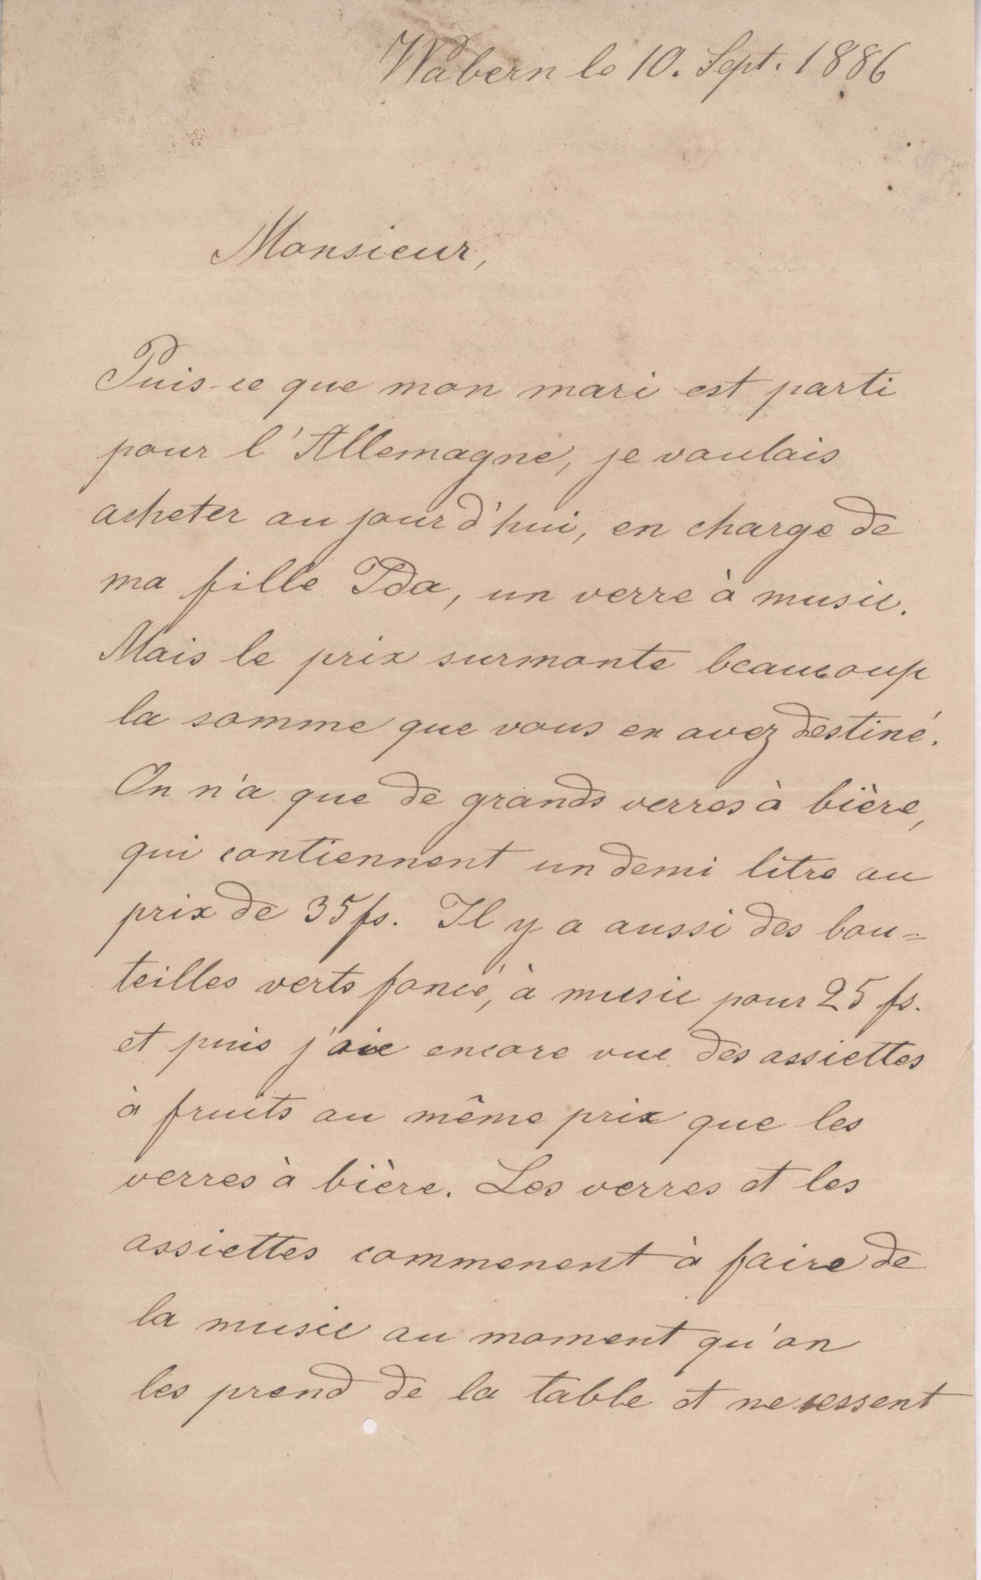 Wabern le 10. Sept. 1886
Monsieur,
Puis-ce que mon mari est parti
pour l'Allemagne, je voulais
acheter au jourd'hui, en charge de
ma fille Ida, un verre à musie.
Mais le prix surmonte beaucoup
la somme que vous en avez destiné.
On n'a que de grands verres à bière,
qui contiennent un demi litre au
prix de 35 fs. Il y a aussi des bou=
teilles verts foncé, à musie pour 25 fs.
et puis j'aie encore vue des assiettes
à fruits au même prix que les
verres à bière. Les verres et les
assiettes commencent à faire de
la musie au moment qu'on
les prend de la table et ne cessent